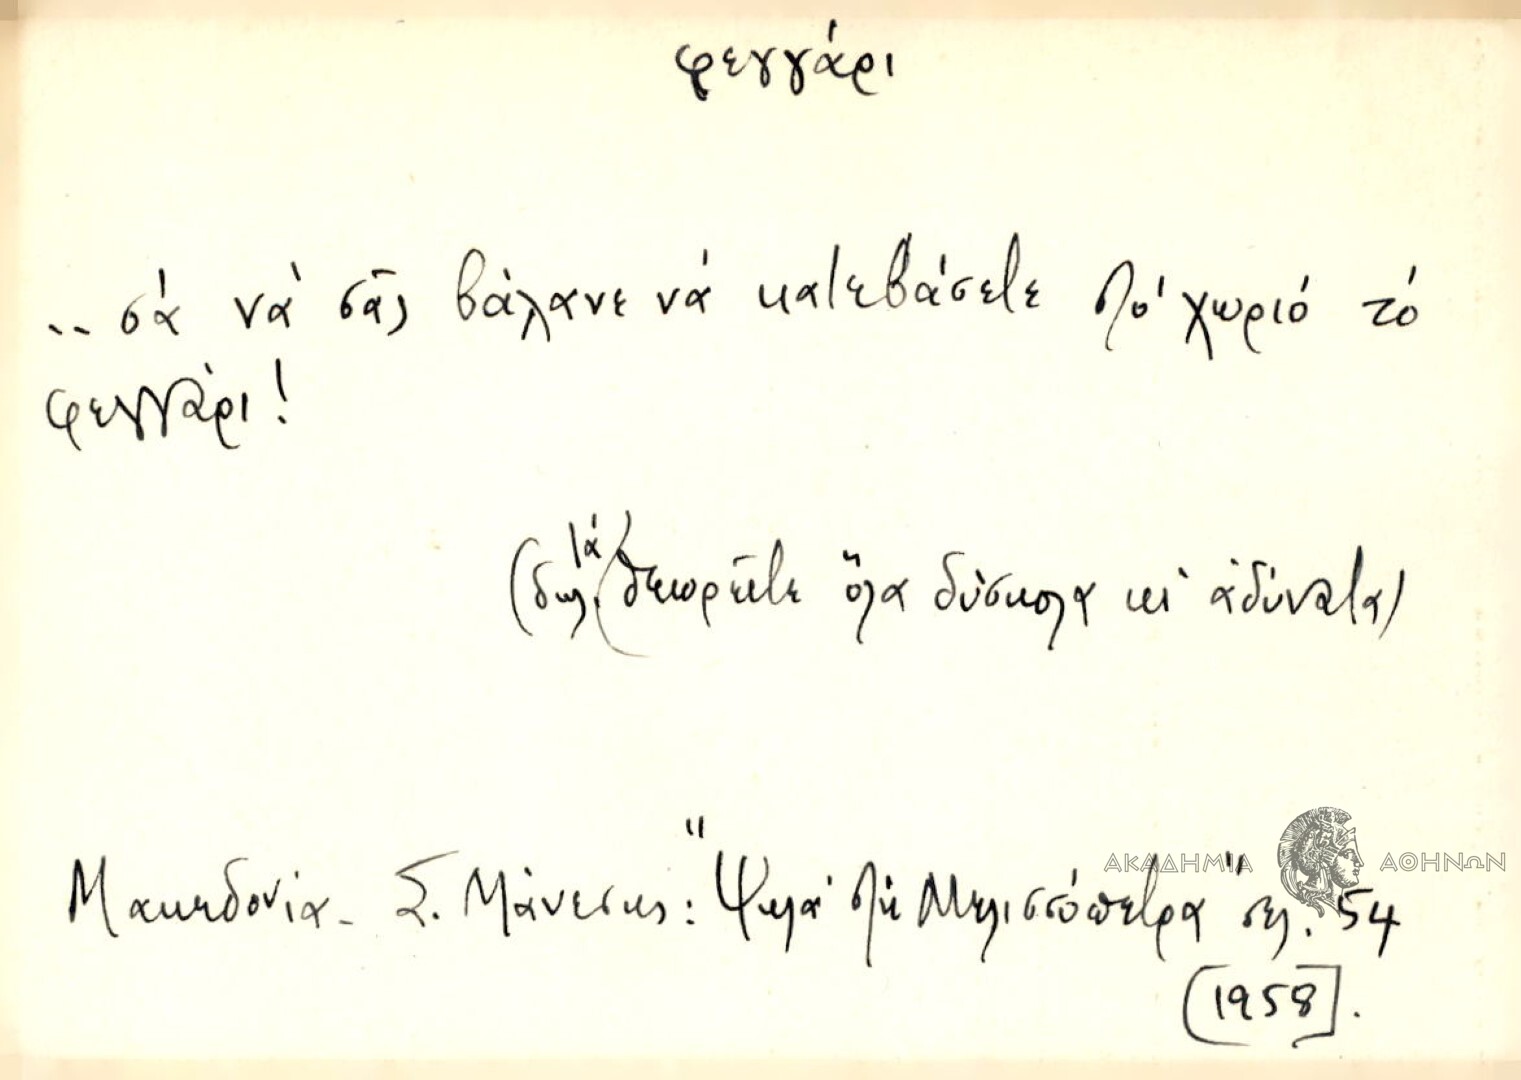 φεγγάρι
.. σά νὰ σᾶς βάλανε νά κατεβάσετε στό χωριό τό
φεγγάρι!
(δηλ. (τά) θεωρεῖτε ὅλα δύσκολα κι ἀδύνατα)
Μακεδονία - Σ. Μάνεσης: "Ψηλά στή Μελισσόπετρα" σελ. 54
[1958].
ΑΚΑΔΗΜΙΑ ΑΘΗΝΩΝ